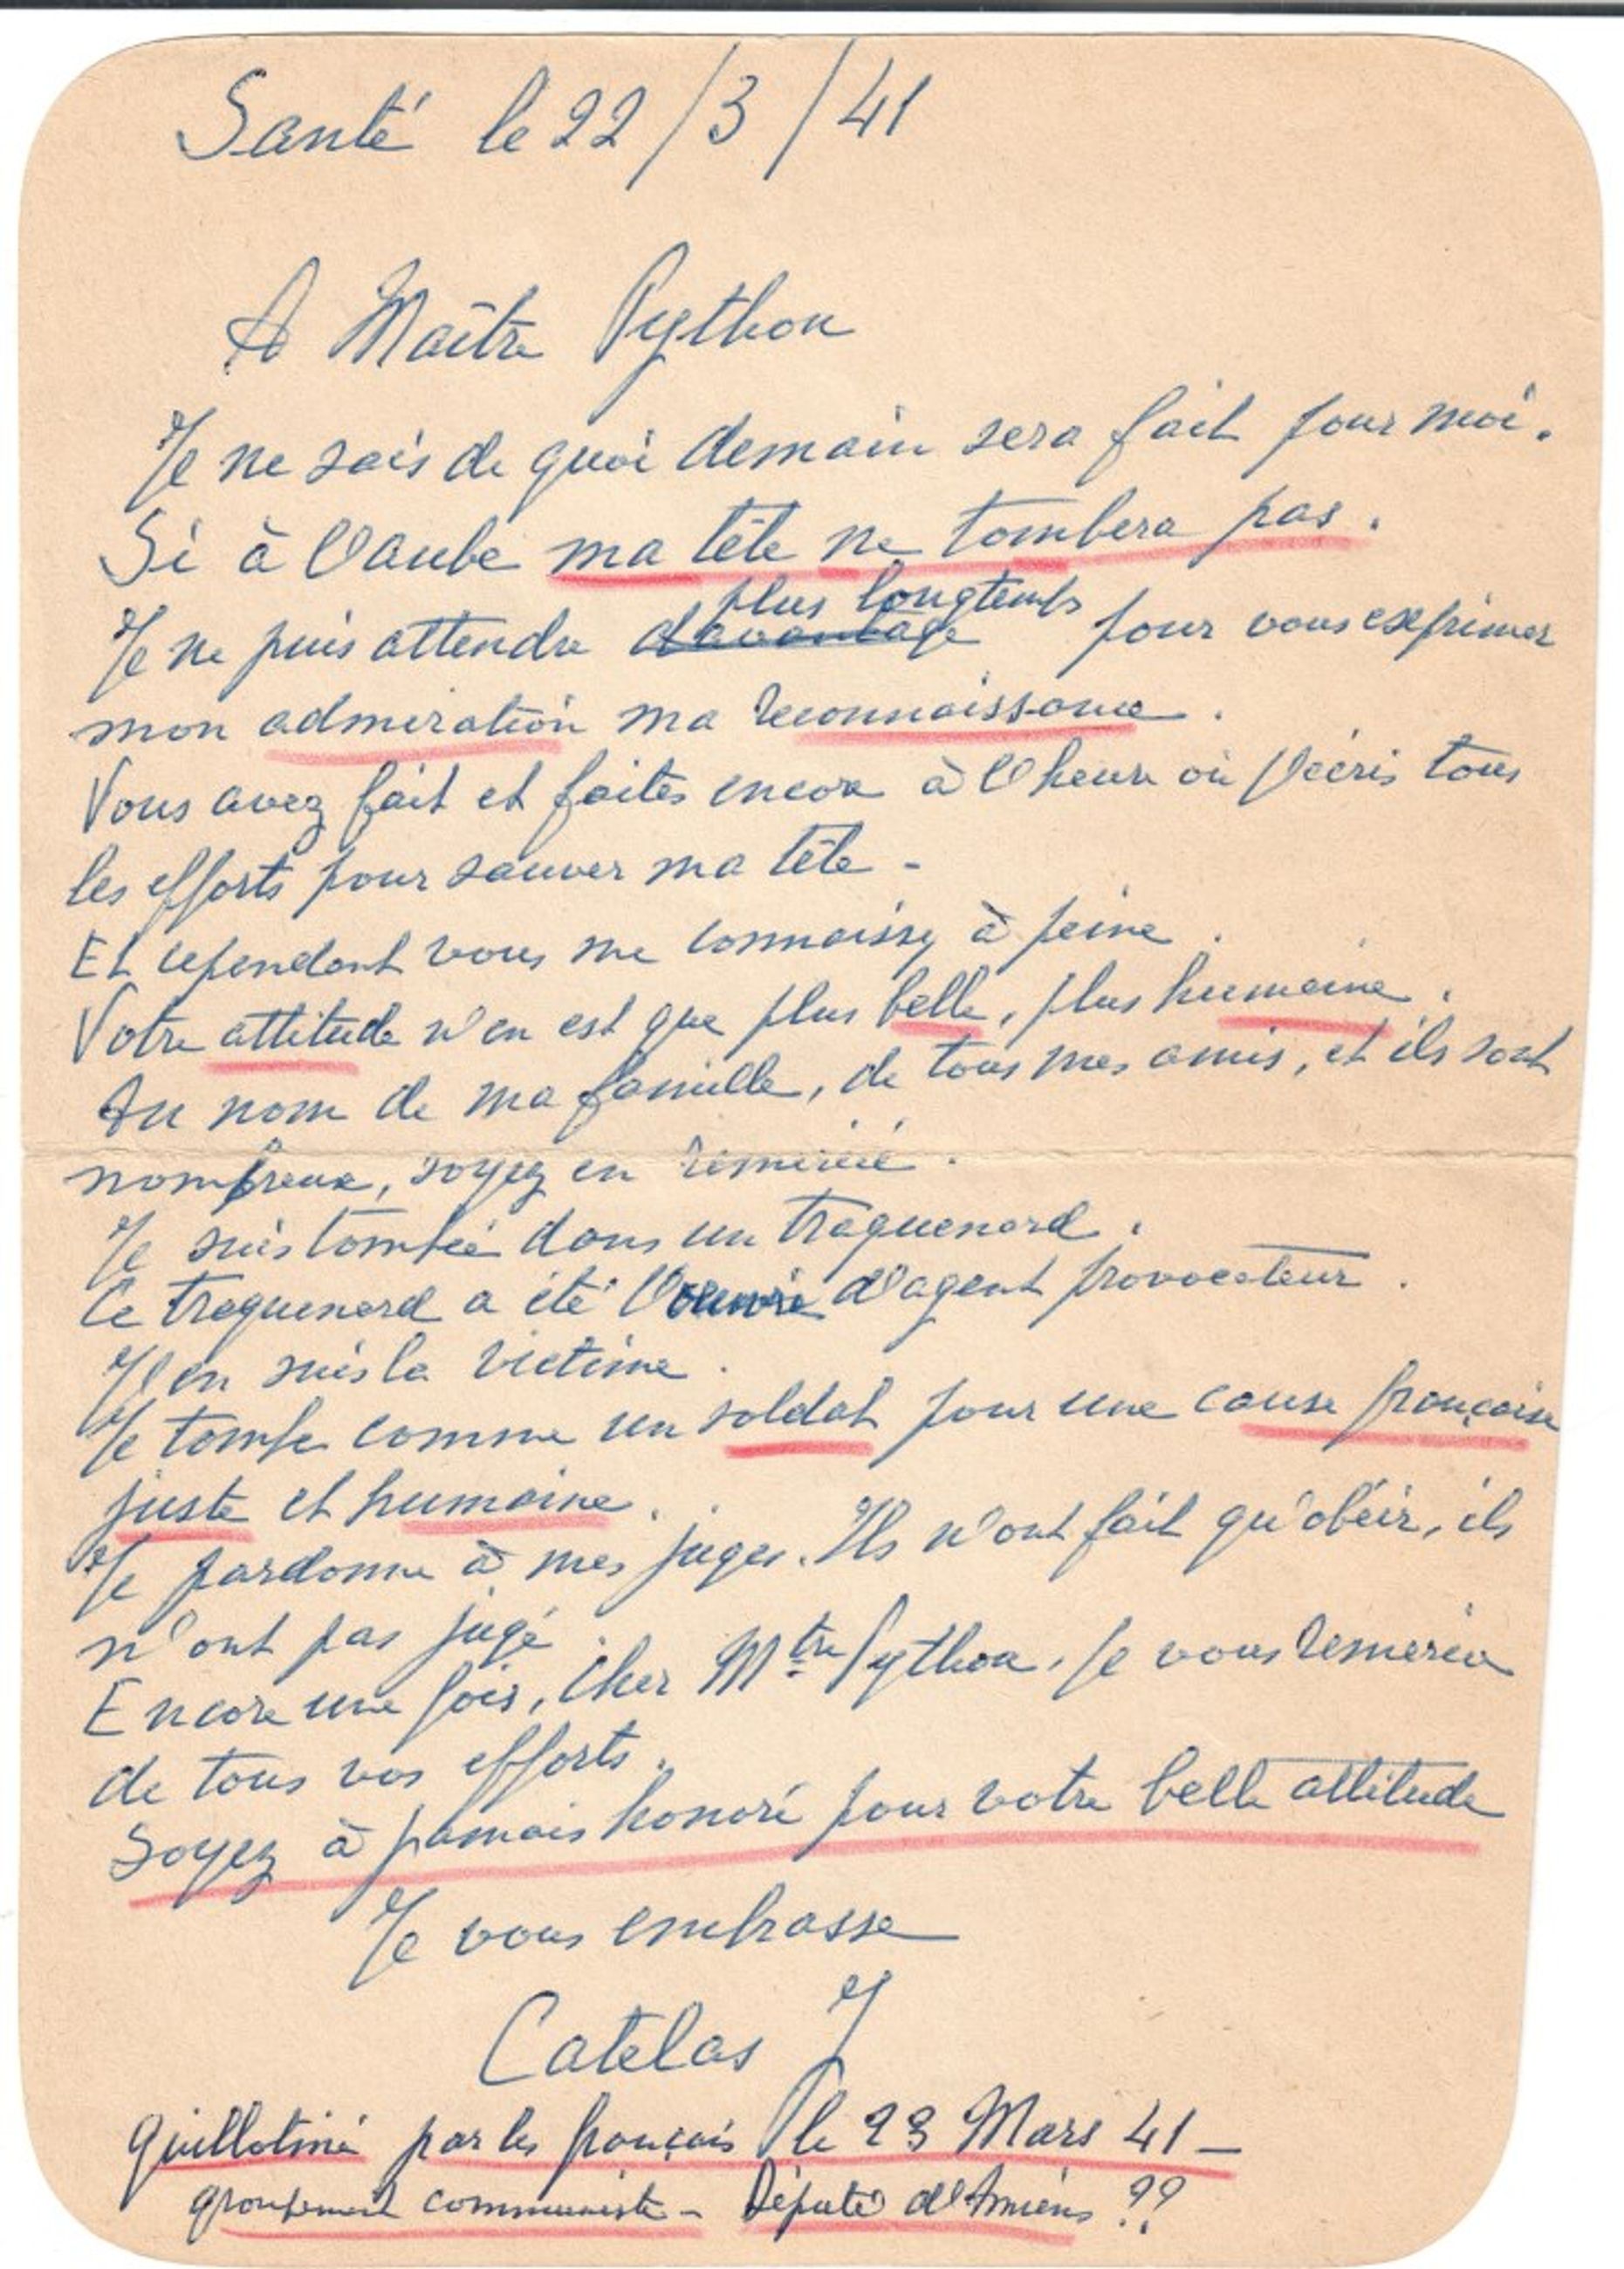 Santé le 22/3/41
A Maître Python
Je ne sais de quoi demain sera fait pour moi.
Si à l'aube ma tête ne tombera pas.
plus longtemps
Je ne puis attendre davantage pour vous exprimer
mon admiration ma reconnaissance.
Vous avez fait et faites encore à l'heure où j'écris tous
les efforts pour sauver ma tête -
Et cependant vous me connaissez à peine.
Votre attitude n'en est que plus belle, plus humaine.
Au nom de ma famille, de tous mes amis, et ils sont
nombreux, soyez en remercié.
Je suis tombé dans un traquenard.
Ce traquenard a été l'oeuvre d'agent provocateur.
J'en suis la victime.
Je tombe comme un soldat pour une cause française
juste et humaine.
Je pardonne à mes juges. Ils n'ont fait qu'obéir, ils
n'ont pas jugé.
Encore une fois, cher Mtre Python, je vous remercie
de tous vos efforts.
Soyez à jamais honoré pour votre belle attitude
Je vous embrasse
Catelas J
Guillotiné par les français le 23 Mars 41 -
groupement communiste - Député d'Amiens ??